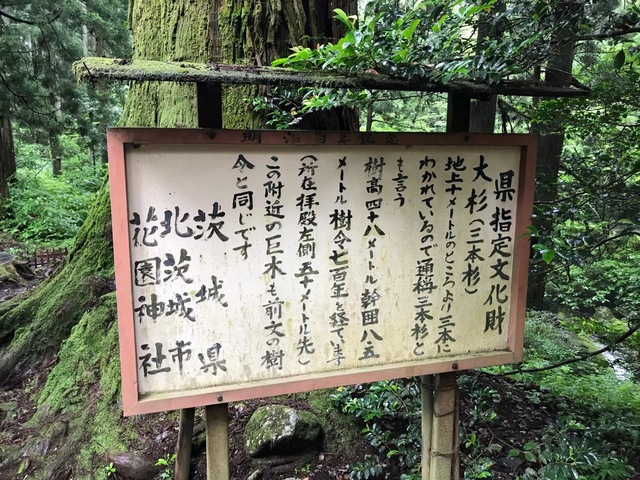 県指定文化財
大杉（三本杉）
地上十メートルのところより三本に
わかれているので通称三本杉と
も言う
樹高四十八メートル幹囲八・五
メートル樹令七百年を経ています
（所在拝殿左側五十メートル先）
この附近の巨木も前文の樹
令と同じです
茨城県
北茨城市
花園神社